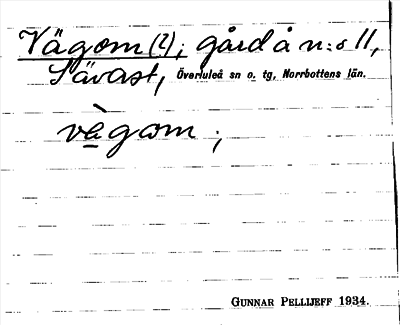 Vägom (2); gård å n:o 11,
Sävast, Överluleå sn o. tg, Norrbottens län.
vàgom ;
GUNNAR PELLIJEFF 1934.